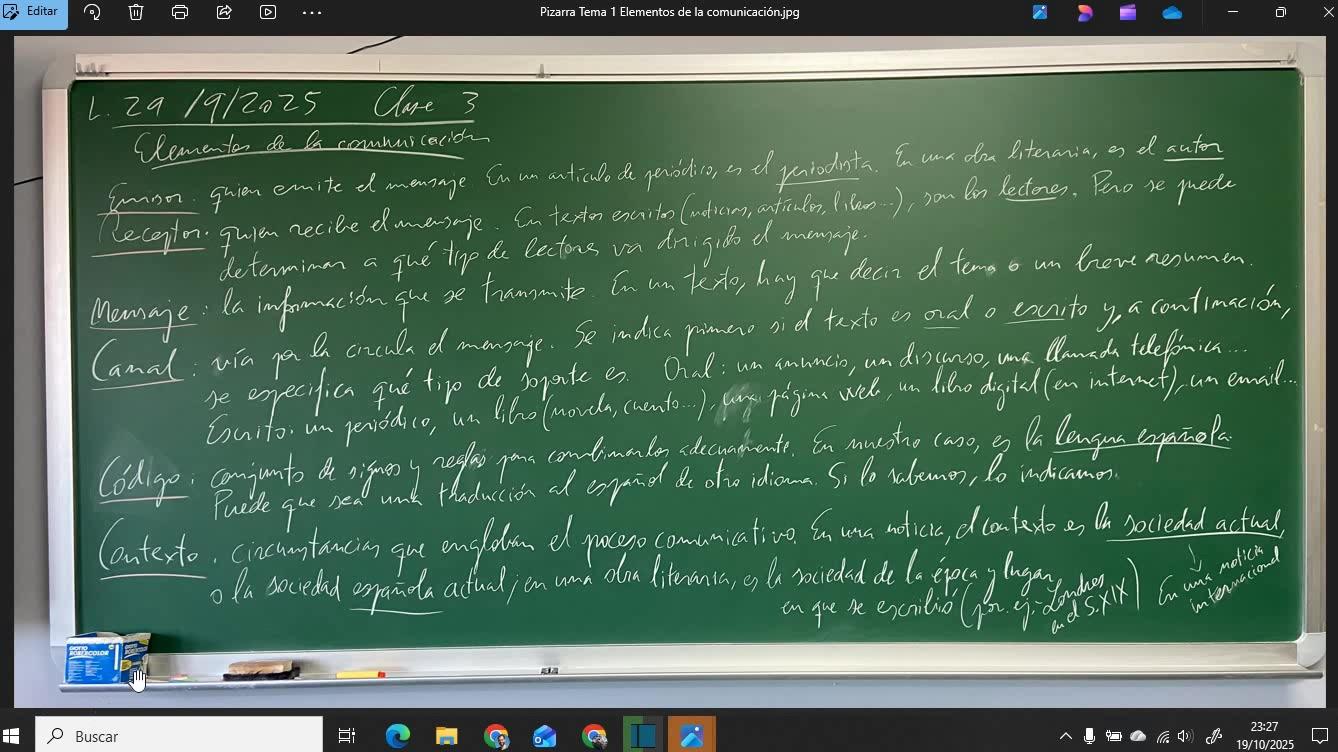 Editar
Pizarra Tema 1 Elementos de la comunicación.jpg
L. 29/9/2025 Clase 3
Elementos de la comunicación
Emisor. quien emite el mensaje. En un artículo de periódico, es el periodista. En una obra literaria, es el autor
Receptor. quien recibe el mensaje. En textos escritos (noticias, artículos, libros...), son los lectores. Pero se puede
determinar a qué tipo de lectores va dirigido el mensaje.
Mensaje: la información que se transmite. En un texto, hay que decir el tema o un breve resumen.
Canal: vía por la circula el mensaje. Se indica primero si el texto es oral o escrito y, a continuación,
se especifica qué tipo de soporte es. Oral: un anuncio, un discurso, una llamada telefónica...
Escrito: un periódico, un libro (novela, cuento...), una página web, un libro digital (en internet), un email...
Código: conjunto de signos y reglas para combinarlos adecuamente. En nuestro caso, es la lengua española.
Puede que sea una traducción al español de otro idioma. Si lo sabemos, lo indicamos.
Contexto. circunstancias que engloban el proceso comunicativo. En una noticia, el contexto es la sociedad actual,
o la sociedad española actual; en una obra literaria, es la sociedad de la época y lugar
en que se escribió (por. ej.- Londres
en el S.XIX)
En una noticia
internacional
GIOTTO
ROBERCOLOR
Buscar
23:27
19/10/2025